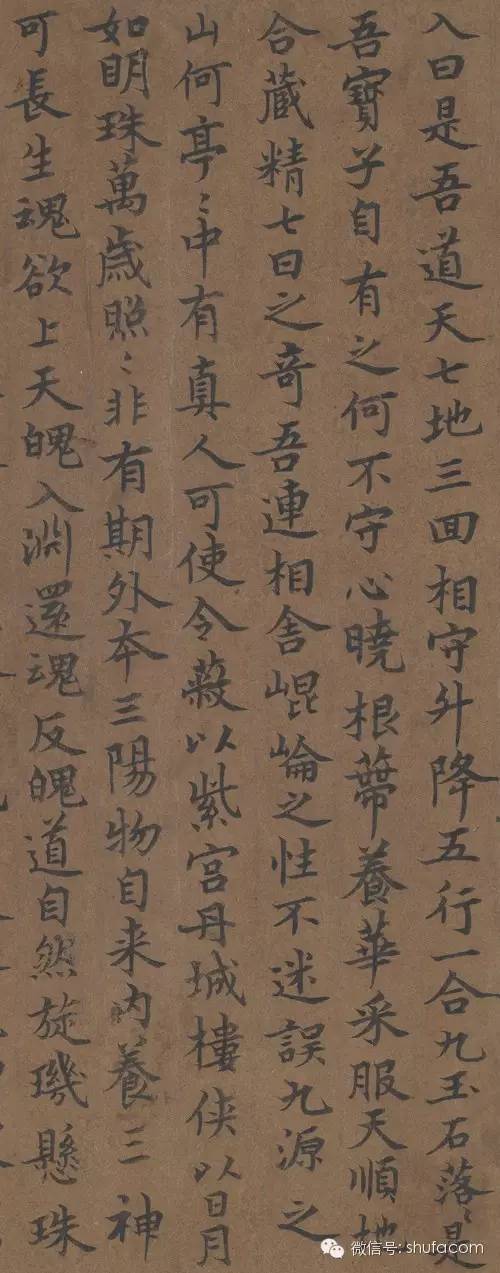 入曰是吾道天七地三回相守升降五行一合九玉石落〻是
吾寶子自有之何不守心曉根蔕養華采服天順地
合藏精七日之奇吾連相舍崐崘之性不迷誤九源之
山何亭〻中有真人可使令蔽以紫宮丹城樓侠以日月
如明珠萬歲照〻非有期外本三陽物自来内養三神
可長生魂欲上天魄入淵還魂反魄道自然旋璣懸珠
微信号: shufacom